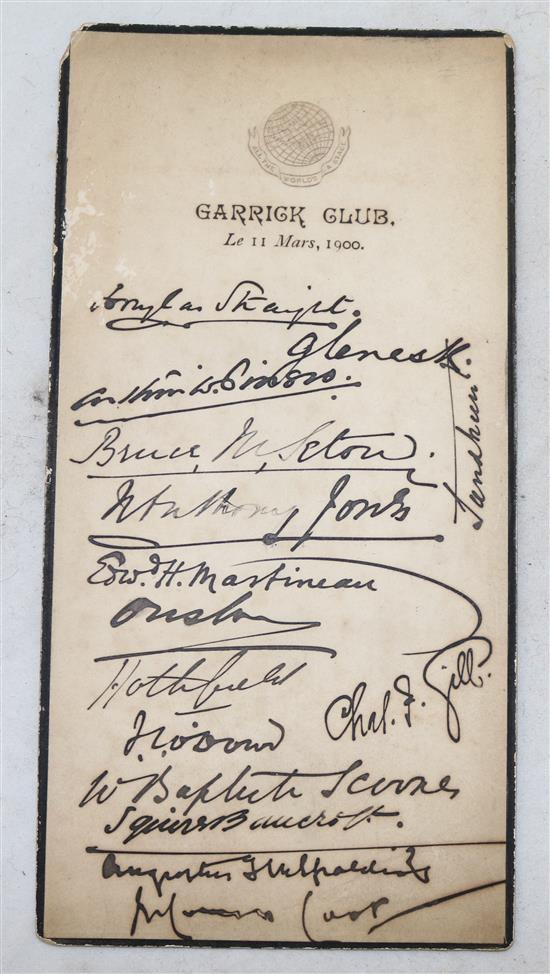 ALL THE WORLD'S A STAGE
GARRICK CLUB.
Le 11 Mars, 1900.
Douglas Straight.
Glenesk.
Arthur W. Pinero.
Bruce M. Seton.
Anthony Jones
Edwd. H. Martineau
Onslow
Hothfield
Chas. F. Gill.
J. O'Dowd
W Baptiste Scoones
Squire Bancroft.
Augustus Spalding
Cook